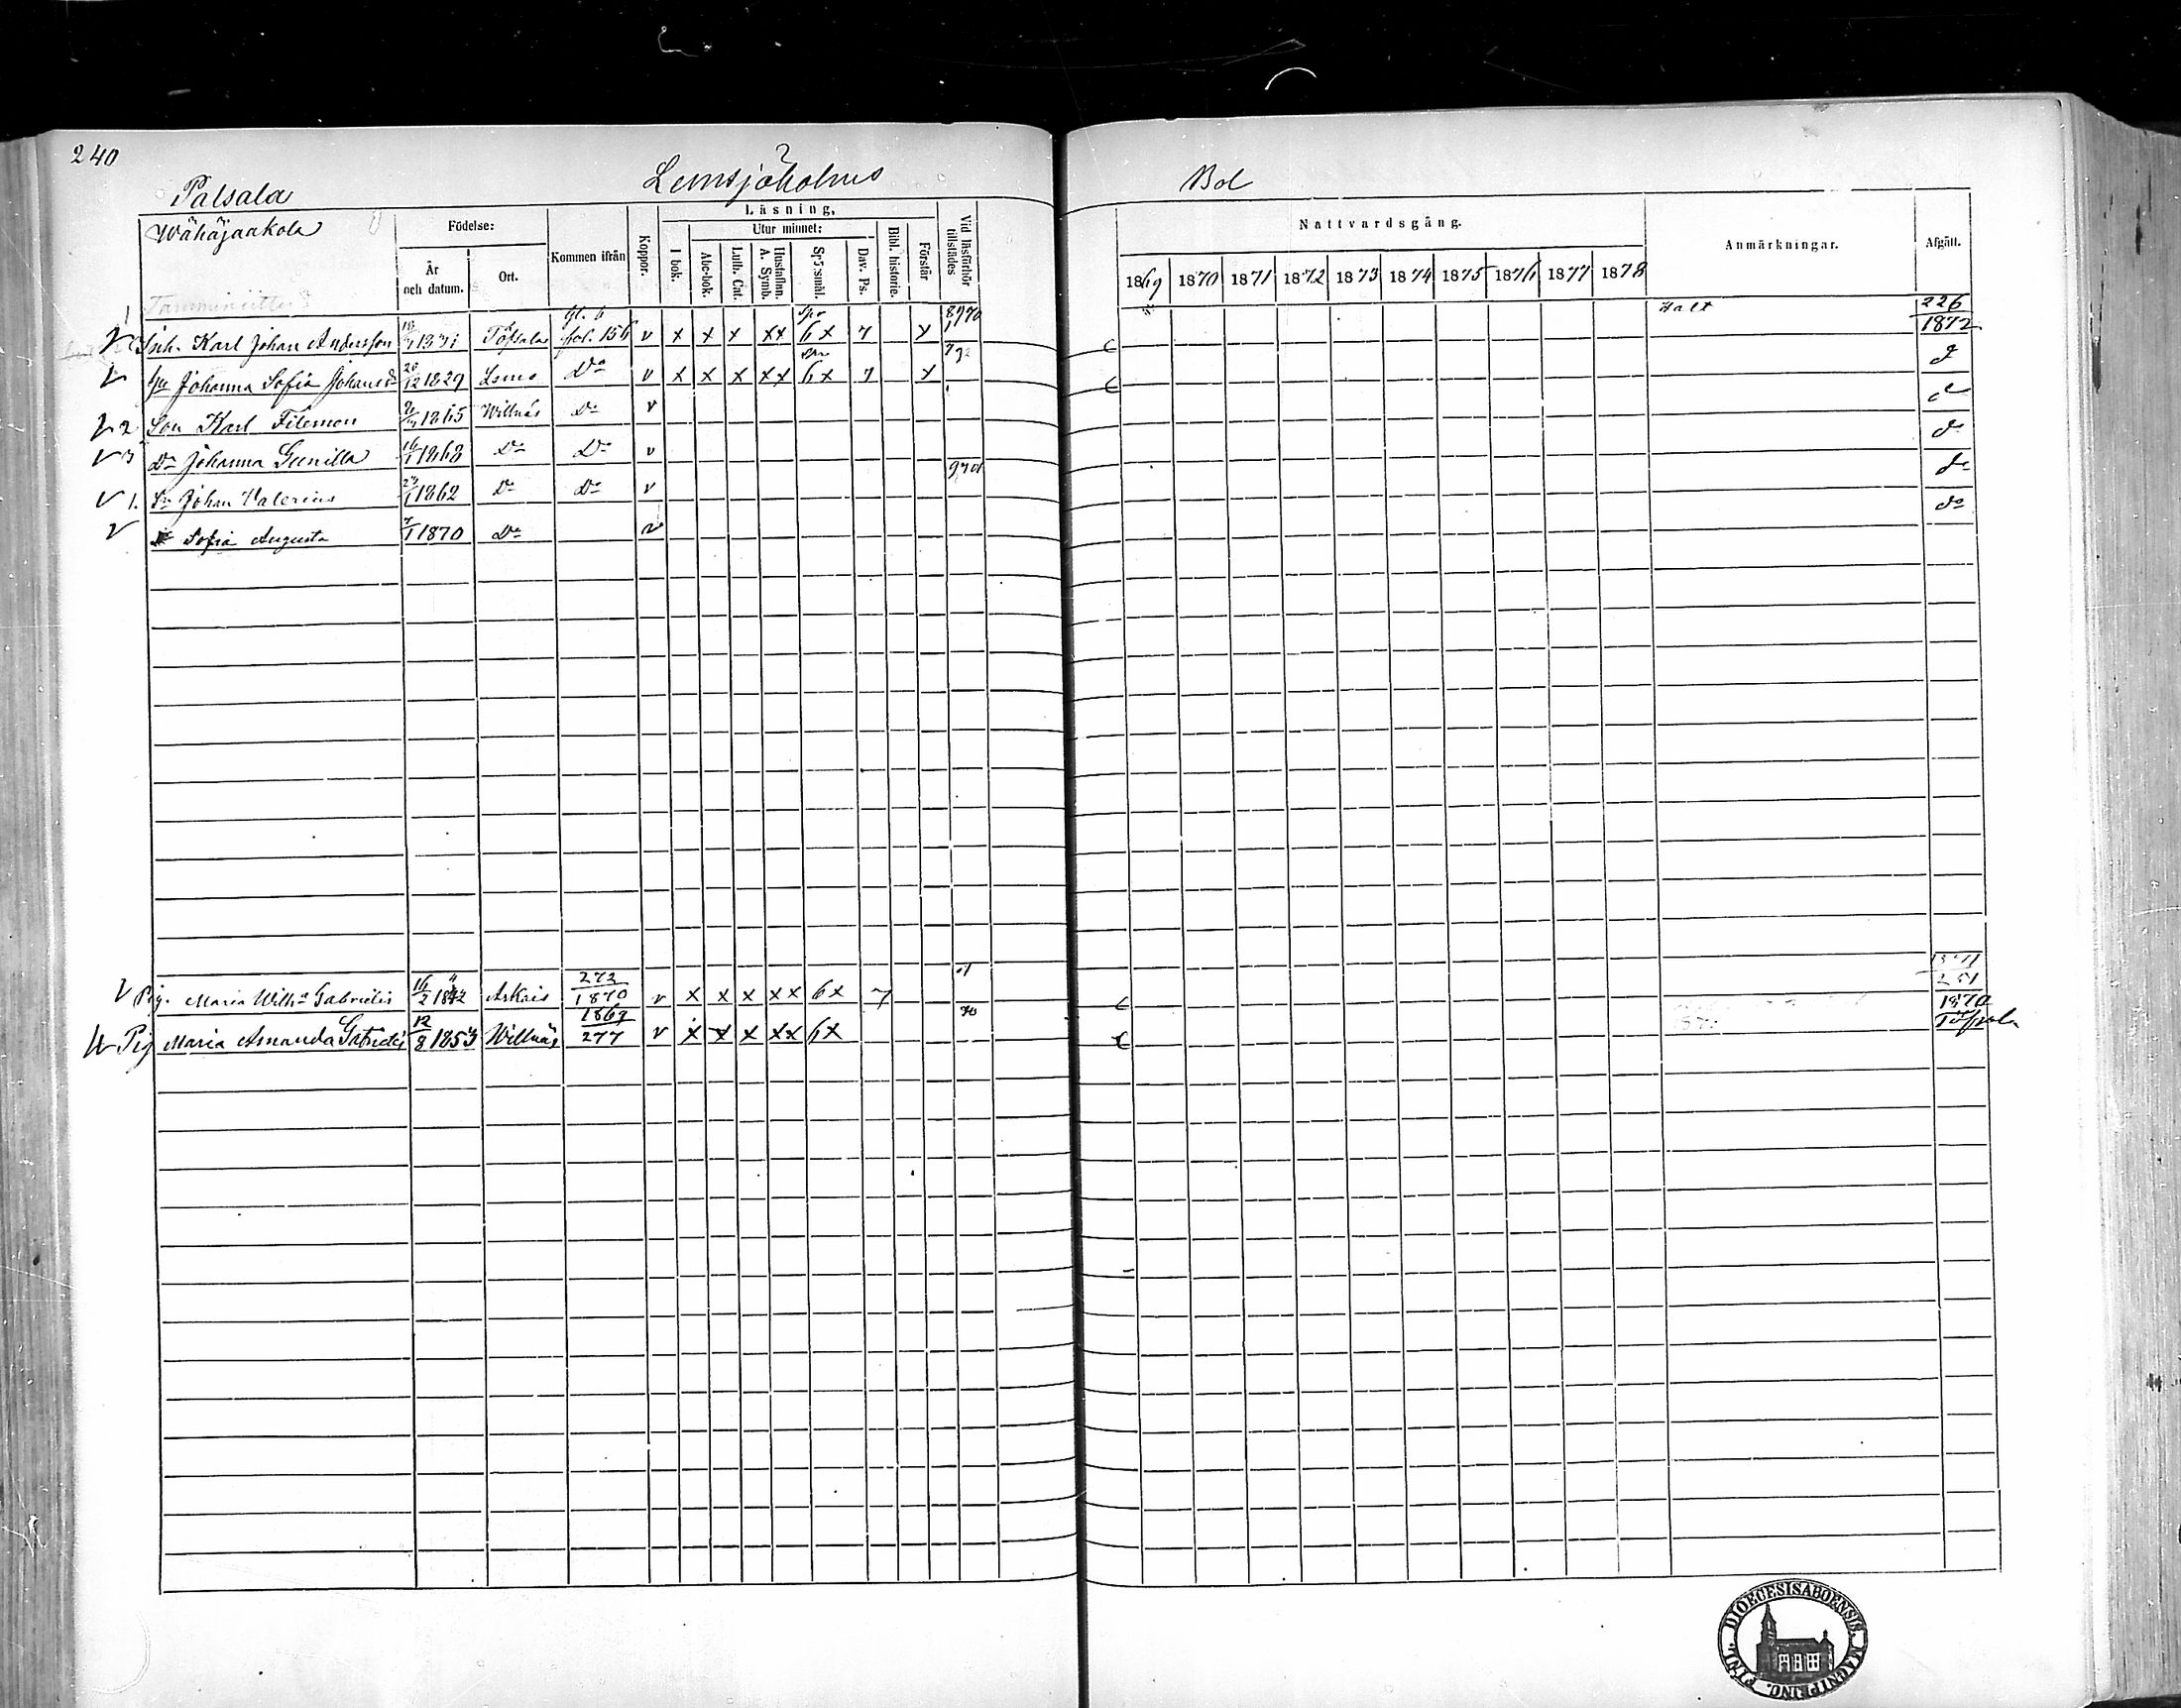 240
Palsala
Lemsjöholms
Bol
Wähäjaakola
Födelse:
År och datum.
Ort.
Kommen ifrån
Koppor.
Läsning.
I bok.
Utur minnet:
Abc-bok.
Luth. Cat.
Hustaflan. A. Symb.
Spörsmål.
Dav. Ps.
Bibl. historie.
Förstår
Vid läsförhör tillstädes
Nattvardsgång.
1869 1870 1871 1872 1873 1874 1875 1876 1877 1878
Anmärkningar.
Afgått.
Karl Johan Andersson 1831 Töfsala fol. 156 v x x x xx 6x 7 x Halt 226 1872
Johanna Sofia 20/12 1829 Lemo Do v x x x xx 6x 7 x
2 Son Karl Filemon 1865 Willnäs Do v
3 Dr Johanna Gunilla 16/1 1868 Do Do v do
1. Sn Johan Valerius 1862 Do Do v do
Sofia Augusta 1870 Do v do
Pig. Maria Gabrielis 16/2 Askais 272 1870 v x x x xx 6x 7
Pig Maria Amanda 12/8 1853 Willnäs 1869 277 v x x x xx 6x 70 1870 Töfsala
DIOECESIS ABOENSIS MAGNI PRINC. FINL.